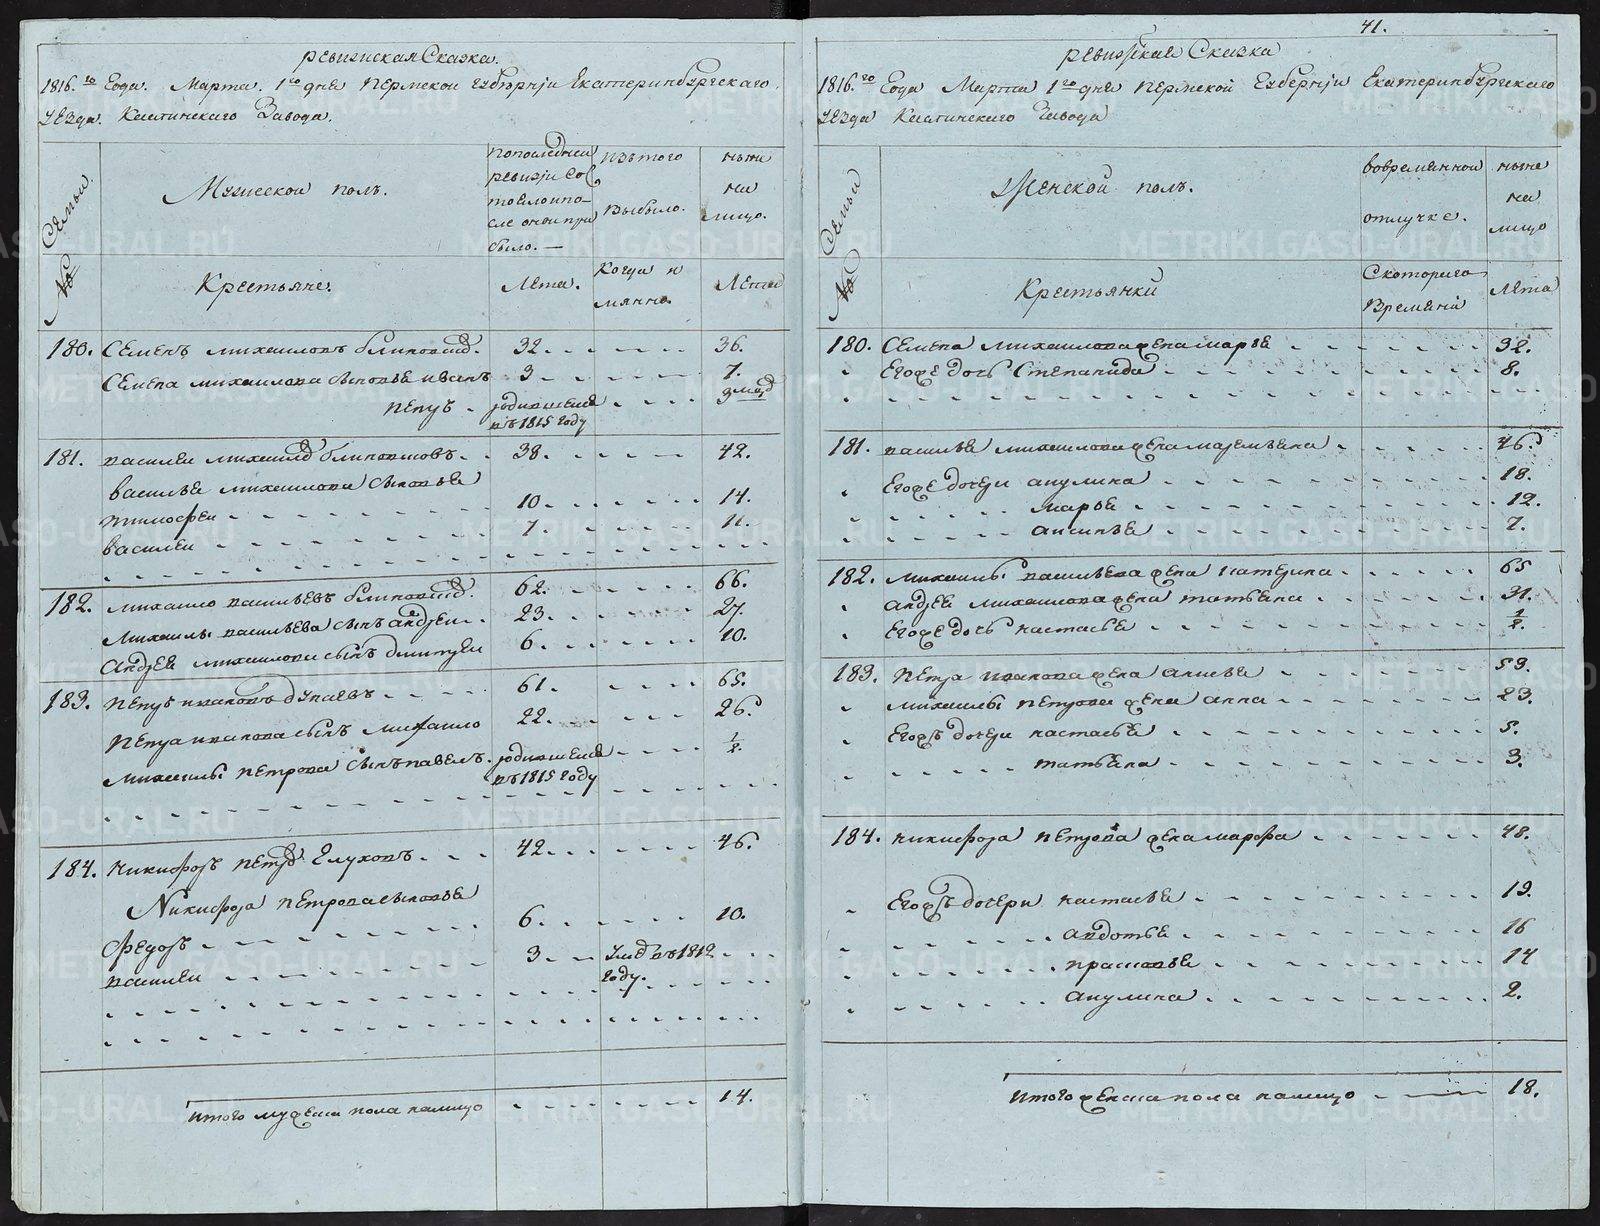 Ревижская Сказка.
1816.го Года. Марта. 1го дня Пермской Губернiи Екатеринбургскаго.
Уезда. Каслинскаго Завода.
№ Семьи.
Мужеской полъ.
По последней
ревизiи со
стояло и по-
сле оной при
было.
Изъ того
выбыло.
Ныне
на
лицо.
Крестьяне.
Лета.
Когда и
мянно.
Лета
180. Семенъ Михаиловъ Блиновсков. 32. 36.
Семена Михаилова сыновья Иванъ 3 7.
Петръ. родившейся 9 мед
въ 1815 году
181. Василеи Михаилов Блиновсковъ. 38. 42.
Василья Михаилова сыновья
Тимофеи 10 14.
Василеи 7. 11.
182. Михаило Васильевъ Блиновсков. 62. 66.
Михаилы Васильева сынъ Андреи. 23. 27.
Андрея Михаилова сынъ Дмитреи 6. 10.
183. Петръ Ивановъ Дунаевъ. 61. 65.
Петра Иванова сынъ Михаило 22. 26.
Михаилы Петрова сынъ Павелъ. родившейся 1/2.
въ 1815 году
184. Никифоръ Петров Глуховъ. 42. 46.
Никифора Петрова сыновья
Федоръ 6. 10.
Василеи 3 умр въ 1812
году.
Итого мужеска пола налицо 14.
41.
Ревижская Сказка
1816.го Года Марта 1го дня Пермской Губернiи Екатеринбургскаго
Уезда Каслинскаго Завода
№ Семьи
Женской полъ.
во временной
отлучке.
ныне
на
лицо
Крестьянки
С котораго
времяни
Лета
180. Семена Михаилова жена Марья 32.
Егоже дочь Степанида 8.
181. Василья Михаилова жена Маремьяна 46.
Егоже дочери Акулина 18.
Марья 12.
Аксинья 7.
182. Михаилы Васильева жена Катерина 65
Андрея Михаилова жена Татьяна 31.
Егоже дочь Настасья 1/2.
183. Петра Иванова жена Анисья 59.
Михаилы Петрова жена Анна 23.
Егожъ дочери Настасья 5.
Татьяна 3.
184. Никифора Петрова жена Марфа 48.
Егожъ дочери Настасья 19.
Авдотья 16
Прасковья 14
Акулина 2.
Итого женска пола налицо 18.
METRIKI.GASO-URAL.RU